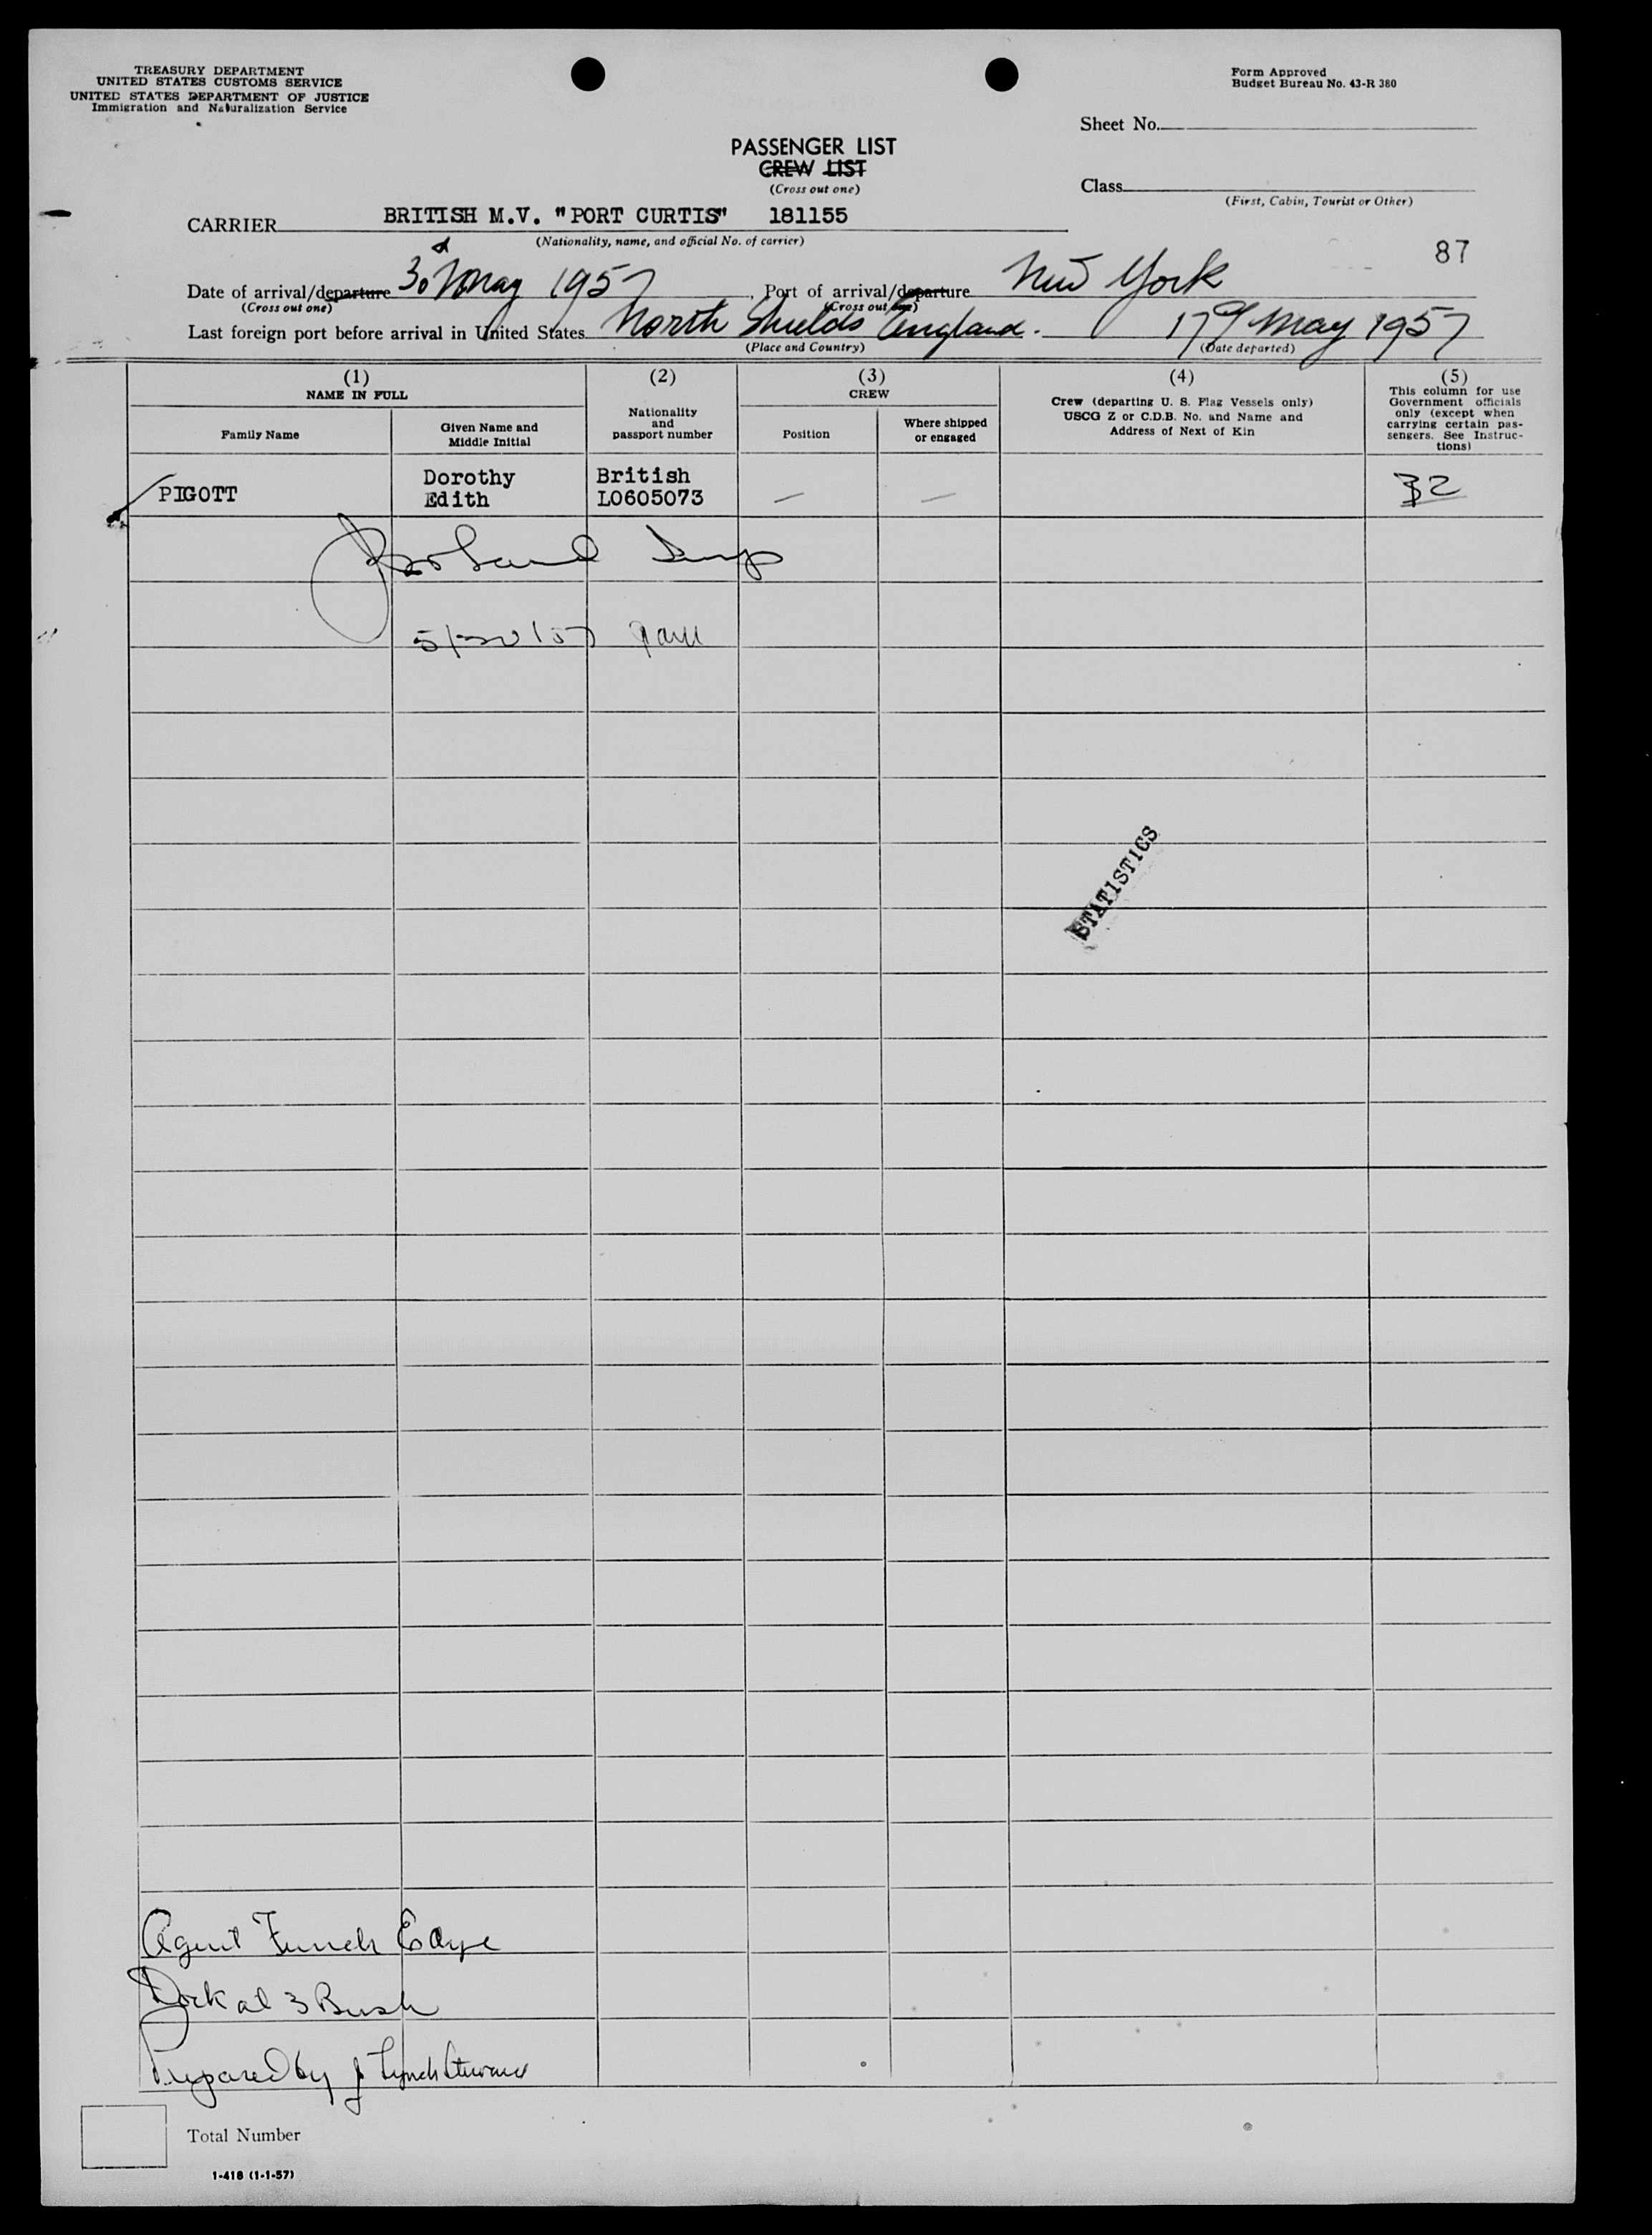 TREASURY DEPARTMENT
UNITED STATES CUSTOMS SERVICE
UNITED STATES DEPARTMENT OF JUSTICE
Immigration and Naturalization Service
Form Approved
Budget Bureau No. 43-R 380
Sheet No.
PASSENGER LIST
CREW LIST
(Cross out one)
Class
(First, Cabin, Tourist or Other)
CARRIER BRITISH M.V. "PORT CURTIS" 181155
(Nationality, name, and official No. of carrier)
87
Date of arrival/departure 30 May 1957, Port of arrival/departure New York
(Cross out one) (Cross out one)
Last foreign port before arrival in United States North Shields England. 17 May 1957
(Place and Country) (Date departed)
(1) (2) (3) (4) (5)
NAME IN FULL
Family Name
Given Name and
Middle Initial
Nationality
and
passport number
CREW
Position
Where shipped
or engaged
Crew (departing U. S. Flag Vessels only)
USCG Z or C.D.B. No. and Name and
Address of Next of Kin
This column for use
Government officials
only (except when
carrying certain pas-
sengers. See Instruc-
tions)
PIGOTT Dorothy Edith British L0605073 — — B2
Insp
5/30/57
STATISTICS
Agent Funch Edye
Dock at 3 Bush
Prepared by J Lynch
Total Number
I-418 (1-1-57)